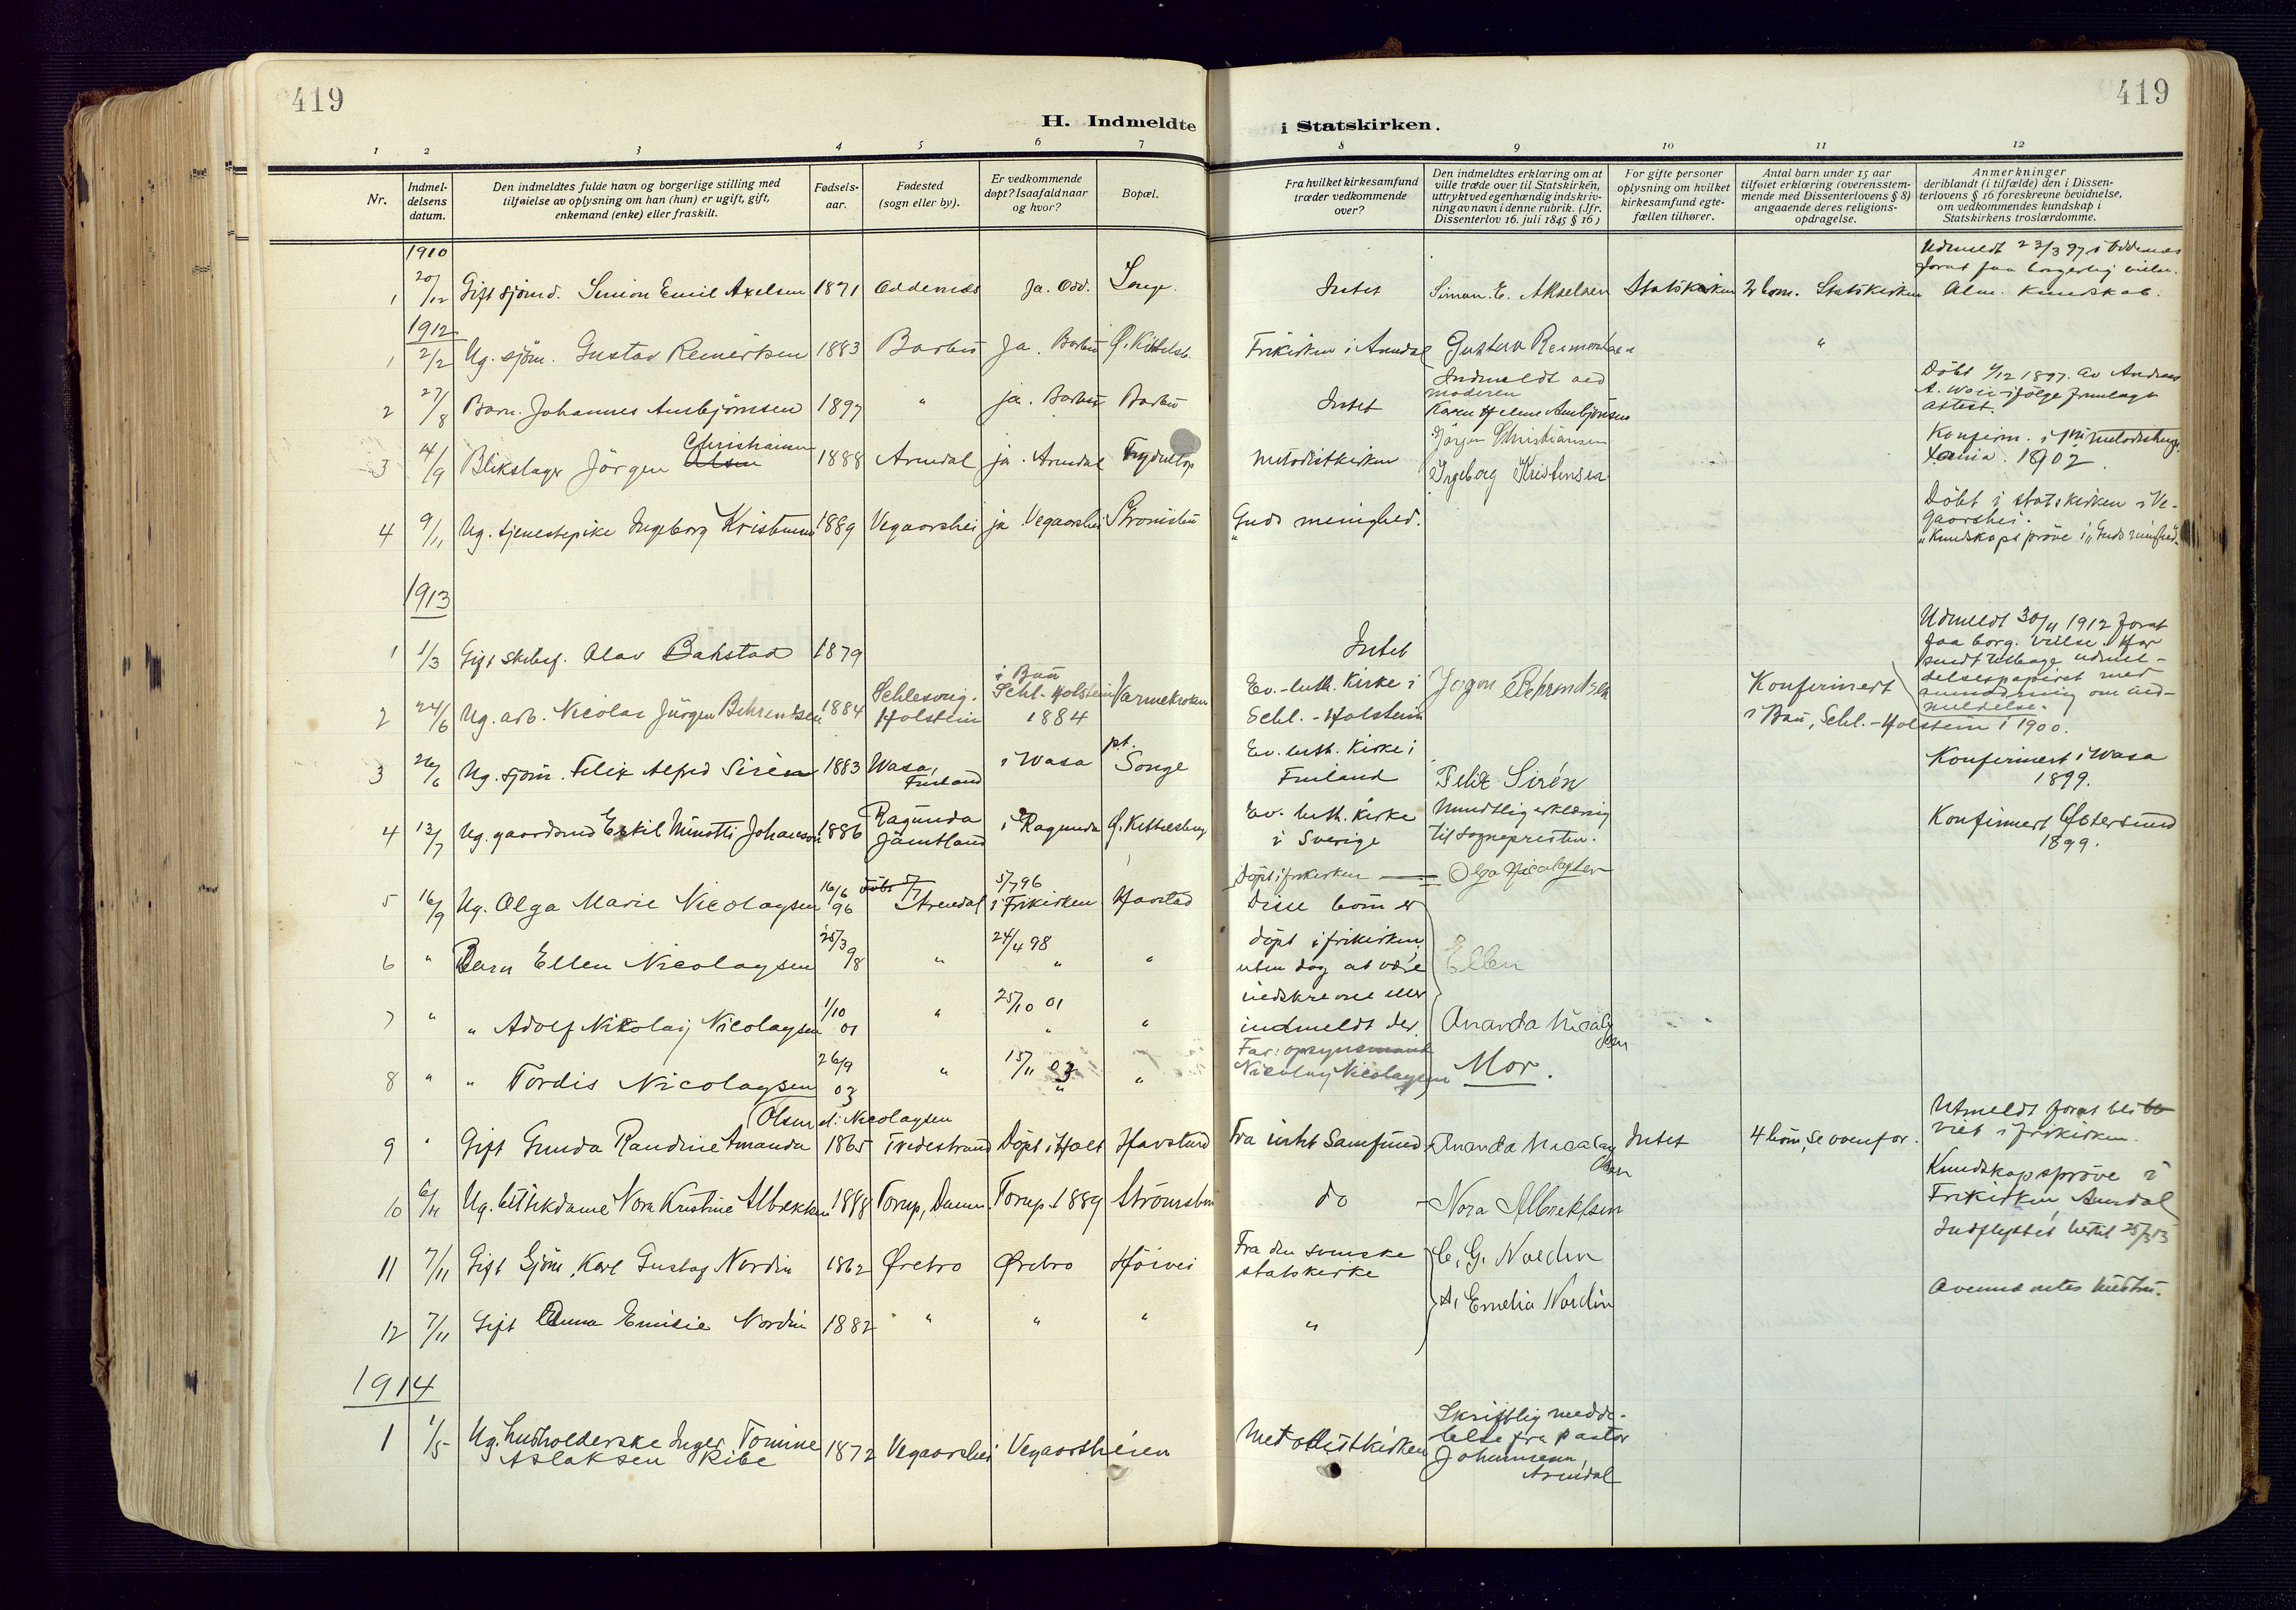 419
419
H. Indmeldte i Statskirken.
1 2 3 4 5 6 7 8 9 10 11 12
Nr.
Indmel-
delsens
datum.
Den indmeldtes fulde navn og borgerlige stilling med
tilføielse av oplysning om han (hun) er ugift, gift,
enkemand (enke) eller fraskilt.
Fødsels-
aar.
Fødested
(sogn eller by).
Er vedkommende
døpt? Isaafald naar
og hvor?
Bopæl.
Fra hvilket kirkesamfund
træder vedkommende
over?
Den indmeldtes erklæring om at
ville træde over til Statskirken,
uttrykt ved egenhændig indskriv-
ning av navn i denne rubrik. (Jfr.
Dissenterlov 16. juli 1845 § 16.)
For gifte personer
oplysning om hvilket
kirkesamfund egte-
fællen tilhører.
Antal barn under 15 aar
tilføiet erklæring (overensstem-
mende med Dissenterlovens § 8)
angaaende deres religions-
opdragelse.
Anmerkninger
deriblandt (i tilfælde) den i Dissen-
terlovens § 16 foreskrevne bevidnelse,
om vedkommendes kundskap i
Statskirkens troslærdomme.
1910
1 20/12 Gift sjømd. Simon Emil Axelsen 1871 Oddernes Ja. Odd. Songe Intet Simon. E. Akselsen Statskirken 2 barn. Statskirken
Udmeldt 23/3 97 i Oddernes
forat faa borgerlig vielse.
Alm. Kundskab.
1912
1 2/2 Ug. sjöm. Gustav Reinertsen 1883 Barbu Ja. Barbu Ø. Kittelsb. Frikirken i Arendal Gustav Reinertsen "
2 27/8 Barn. Johannes Ambjörnsen 1897 " ja. Barbu Barbu Intet
Indmeldt ved
moderen
Karen Helene Ambjörnsen
Döbt 4/12 1897. av Andreas
A. Wow ifölge fremlagt
attest.
3 14/9 Blikslager Jörgen Olsen Christiansen 1888 Arendal ja. Arendal Metodistkirken Jörgen Christiansen
Konfirm. i
Xania. 1902.
4 9/11 Ug. tjenestepike Ingeborg Kristensen 1889 Vegaarshei ja Vegaarshei Strömsbu "Guds menighed. Ingeborg Kristensen
Döbt i statskirken i Ve-
gaarshei.
Kundskapsprøve i "Guds menighed.
1913
1 1/3 Gift skibsf. Olav Bakstad 1879 Intet
Udmeldt 30/11 1912 forat
faa borg. vielse. Har
sendt tilbage udmel-
delsespapiret med
anmodning om ind-
meldelse.
2 24/6 Ug. arb. Nicolai Jürgen Behrendsen 1884
Schleswig-
Holstein
i Bau
Schl.-Holstein
1884
Varmekroken
Ev.-luth. Kirke i
Schl.-Holstein
Jørgen Behrendsen
Konfirmert
i Bau, Schl.-Holstein i 1900.
3 26/6 Ug. sjöm. Felix Alfred Sirén 1883
Wasa,
Finland
i Wasa
pt.
Songe
Ev. luth. Kirke i
Finland
Felix Sirén
Konfirmert i Wasa
1899.
4 13/7 Ug. gaardsmd Eskil Minotti Johanson 1886
Ragunda
Jämtland
i Ragunda Ø. Kittelsbug
Ev. luth. Kirke
i Sverige
Mundtlig erklæring
til sognepresten.
Konfirmert Östersund
1899.
5 16/9 Ug. Olga Marie Nicolaysen 16/6 96 Arendal
5/7 96
i Frikirken
Havstad
Döpt i frikirken
Olga Nicolaysen
Disse barn er
döpt i frikirken,
uten dog at være
indskrevne eller
indmeldt der.
Far: opsynsmand
Nicolay Nicolaysen
6 " Barn Ellen Nicolaysen 25/3 98 " 24/4 98 " " Ellen
7 " " Adolf Nikolaij Nicolaysen 1/10 01 " 25/10 01 " " Amanda Nicolaysen
8 " " Tordis Nicolaysen 26/9 03 " 15/11 03 " " Mor.
(Olsen el: Nicolaysen
9 " Gift Gunda Randine Amanda 1865 Tvedestrand Döpt i Holt Havstad Fra intet Samfund Amanda Nicolaysen Olsen Intet 4 barn, se ovenfor.
Utmeldt forat bli
viet i frikirken.
10 6/11 Ug. butikdame Nora Kristine Albrektsen 1888 Torup, Danm. Torup 1889 Strömsbu do Nora Albrektsen
Kundskapsprøve i
Frikirken, Arendal
11 7/11 Gift Sjöm. Karl Gustaf Nordin 1862 Örebro Örebro Höivei
Fra den svenske
statskirke
C. G. Nordin
Indflyttet hertil 25/3 13
12 7/11 Gift Anna Emilie Nordin 1882 " " " " A. Emelia Nordin
Ovennævntes hustru.
1914
1 1/5 Ug. husholderske Inger Tomine
Aslaksen Ribe
1872 Vegaarshei Vegaarsheien Metodistkirken
Skriftlig medde-
lelse fra pastor
Johannesen,
Arendal